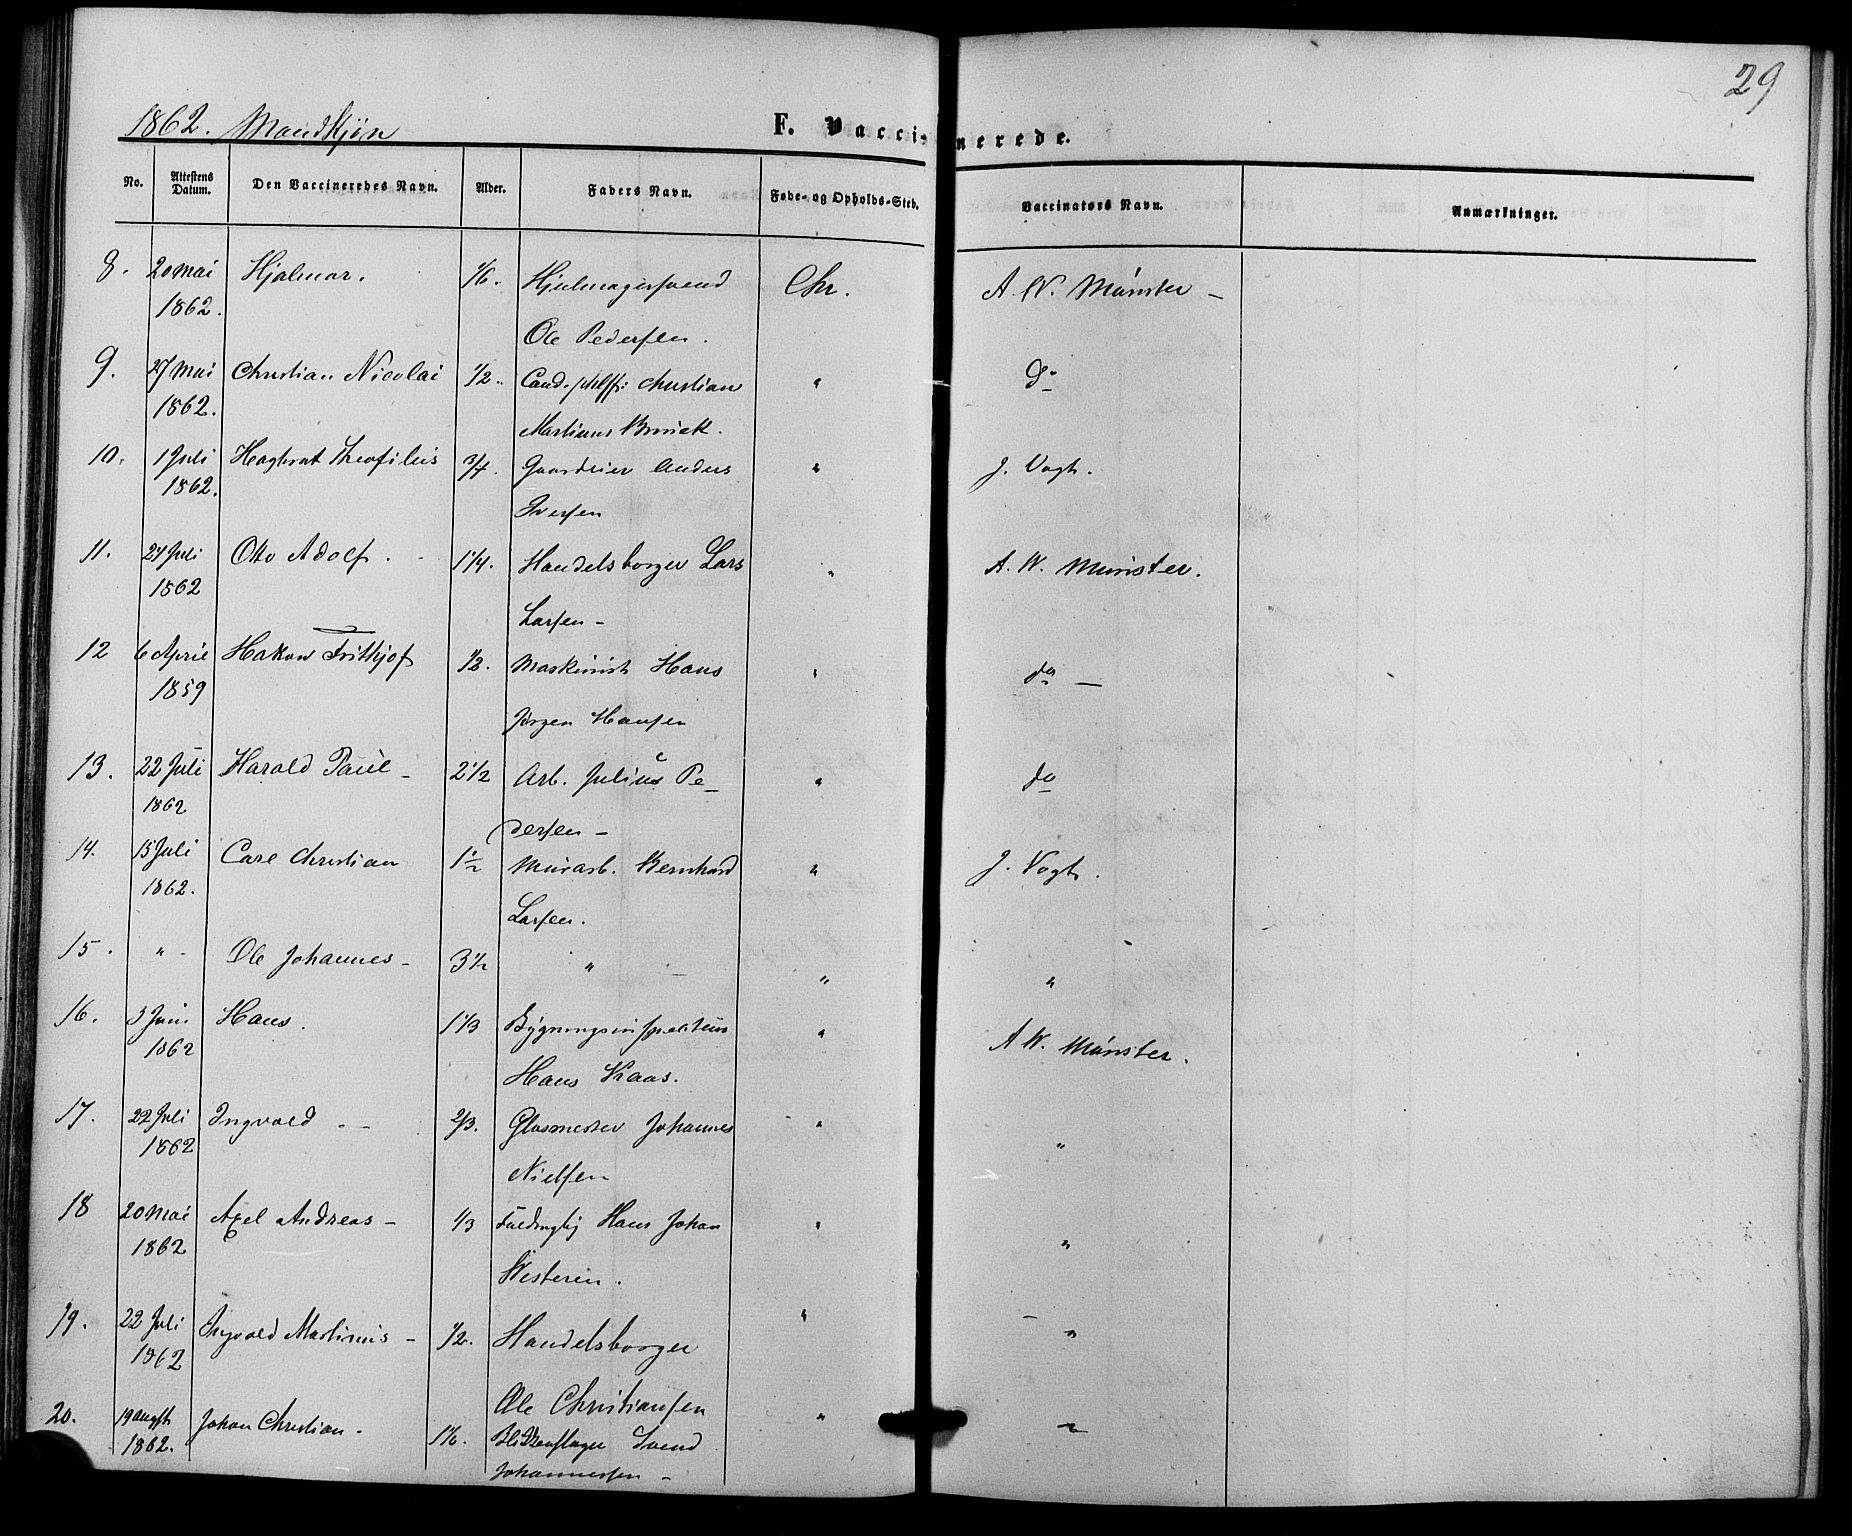 29
1862. Mandkjøn
F. Vaccinerede.
No. Attestens Datum. Den Vaccineredes Navn. Alder. Faders Navn. Føde- og Opholds-Sted. Vaccinators Navn. Anmærkninger.
8. 20 Mai Hjalmar. 1/6. Hjulmagersvend Chr. A. W. Münster –
1862. Ole Pedersen.
9. 27 Mai Christian Nicolai 1/2. Cand. philos: Christian " do
1862. Martinus
10. 1 Juli Theofilus 3/4. Gaardeier Anders " J. Vogt.
1862. Iversen
11. 24 Juli Otto Adolf. 1 1/4. Handelsborger Lars " A. W. Münster.
1862 Larsen –
12 6 April Hakon Frithjof 1/2. Maskinist Hans " do –
1859 Jørgen Hansen
13. 22 Juli Harald Paul – 2 1/2 Arb. Julius Pe– " do
1862 dersen –
14. 15 Juli Carl Christian 1 1/2 Murarb. Bernhard " J. Vogt.
1862. Larsen.
15. " – Ole Johannes – 3 1/2 " – " "
16. 3 Juni Hans. 1 1/3 Bygningsinspecteur " A. W. Münster.
1862 Hans Kaas.
17. 22 Juli Ingvald – – 2/3. Glasmester Johannes " "
1862 Nielsen
18 20 Mai Axel Andreas – 1/3 Hans Johan " "
1862 Westerin.
19. 22 Juli Ingvald Martinius – 1/2. Handelsborger " – "
1862 Ole Christiansen
20. 19 Augst Johan Christian. 1 1/6. Blikkenslager Svend " "
1862. Johannessen –